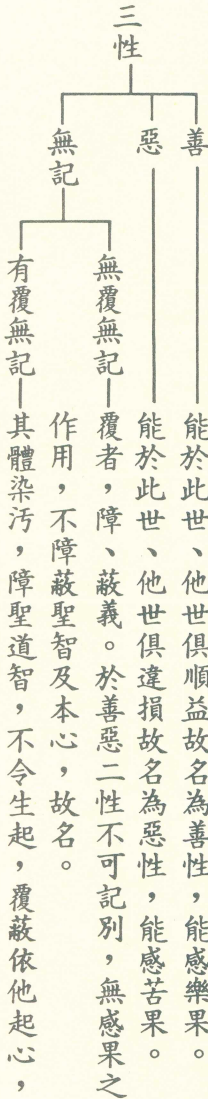 三性
善
能於此世、他世俱順益故名為善性，能感樂果。
惡
能於此世、他世俱違損故名為惡性，能感苦果。
無記
無覆無記
覆者，障、蔽義。於善惡二性不可記別，無感果之
作用，不障蔽聖智及本心，故名。
有覆無記
其體染污，障聖道智，不令生起，覆蔽依他起心，